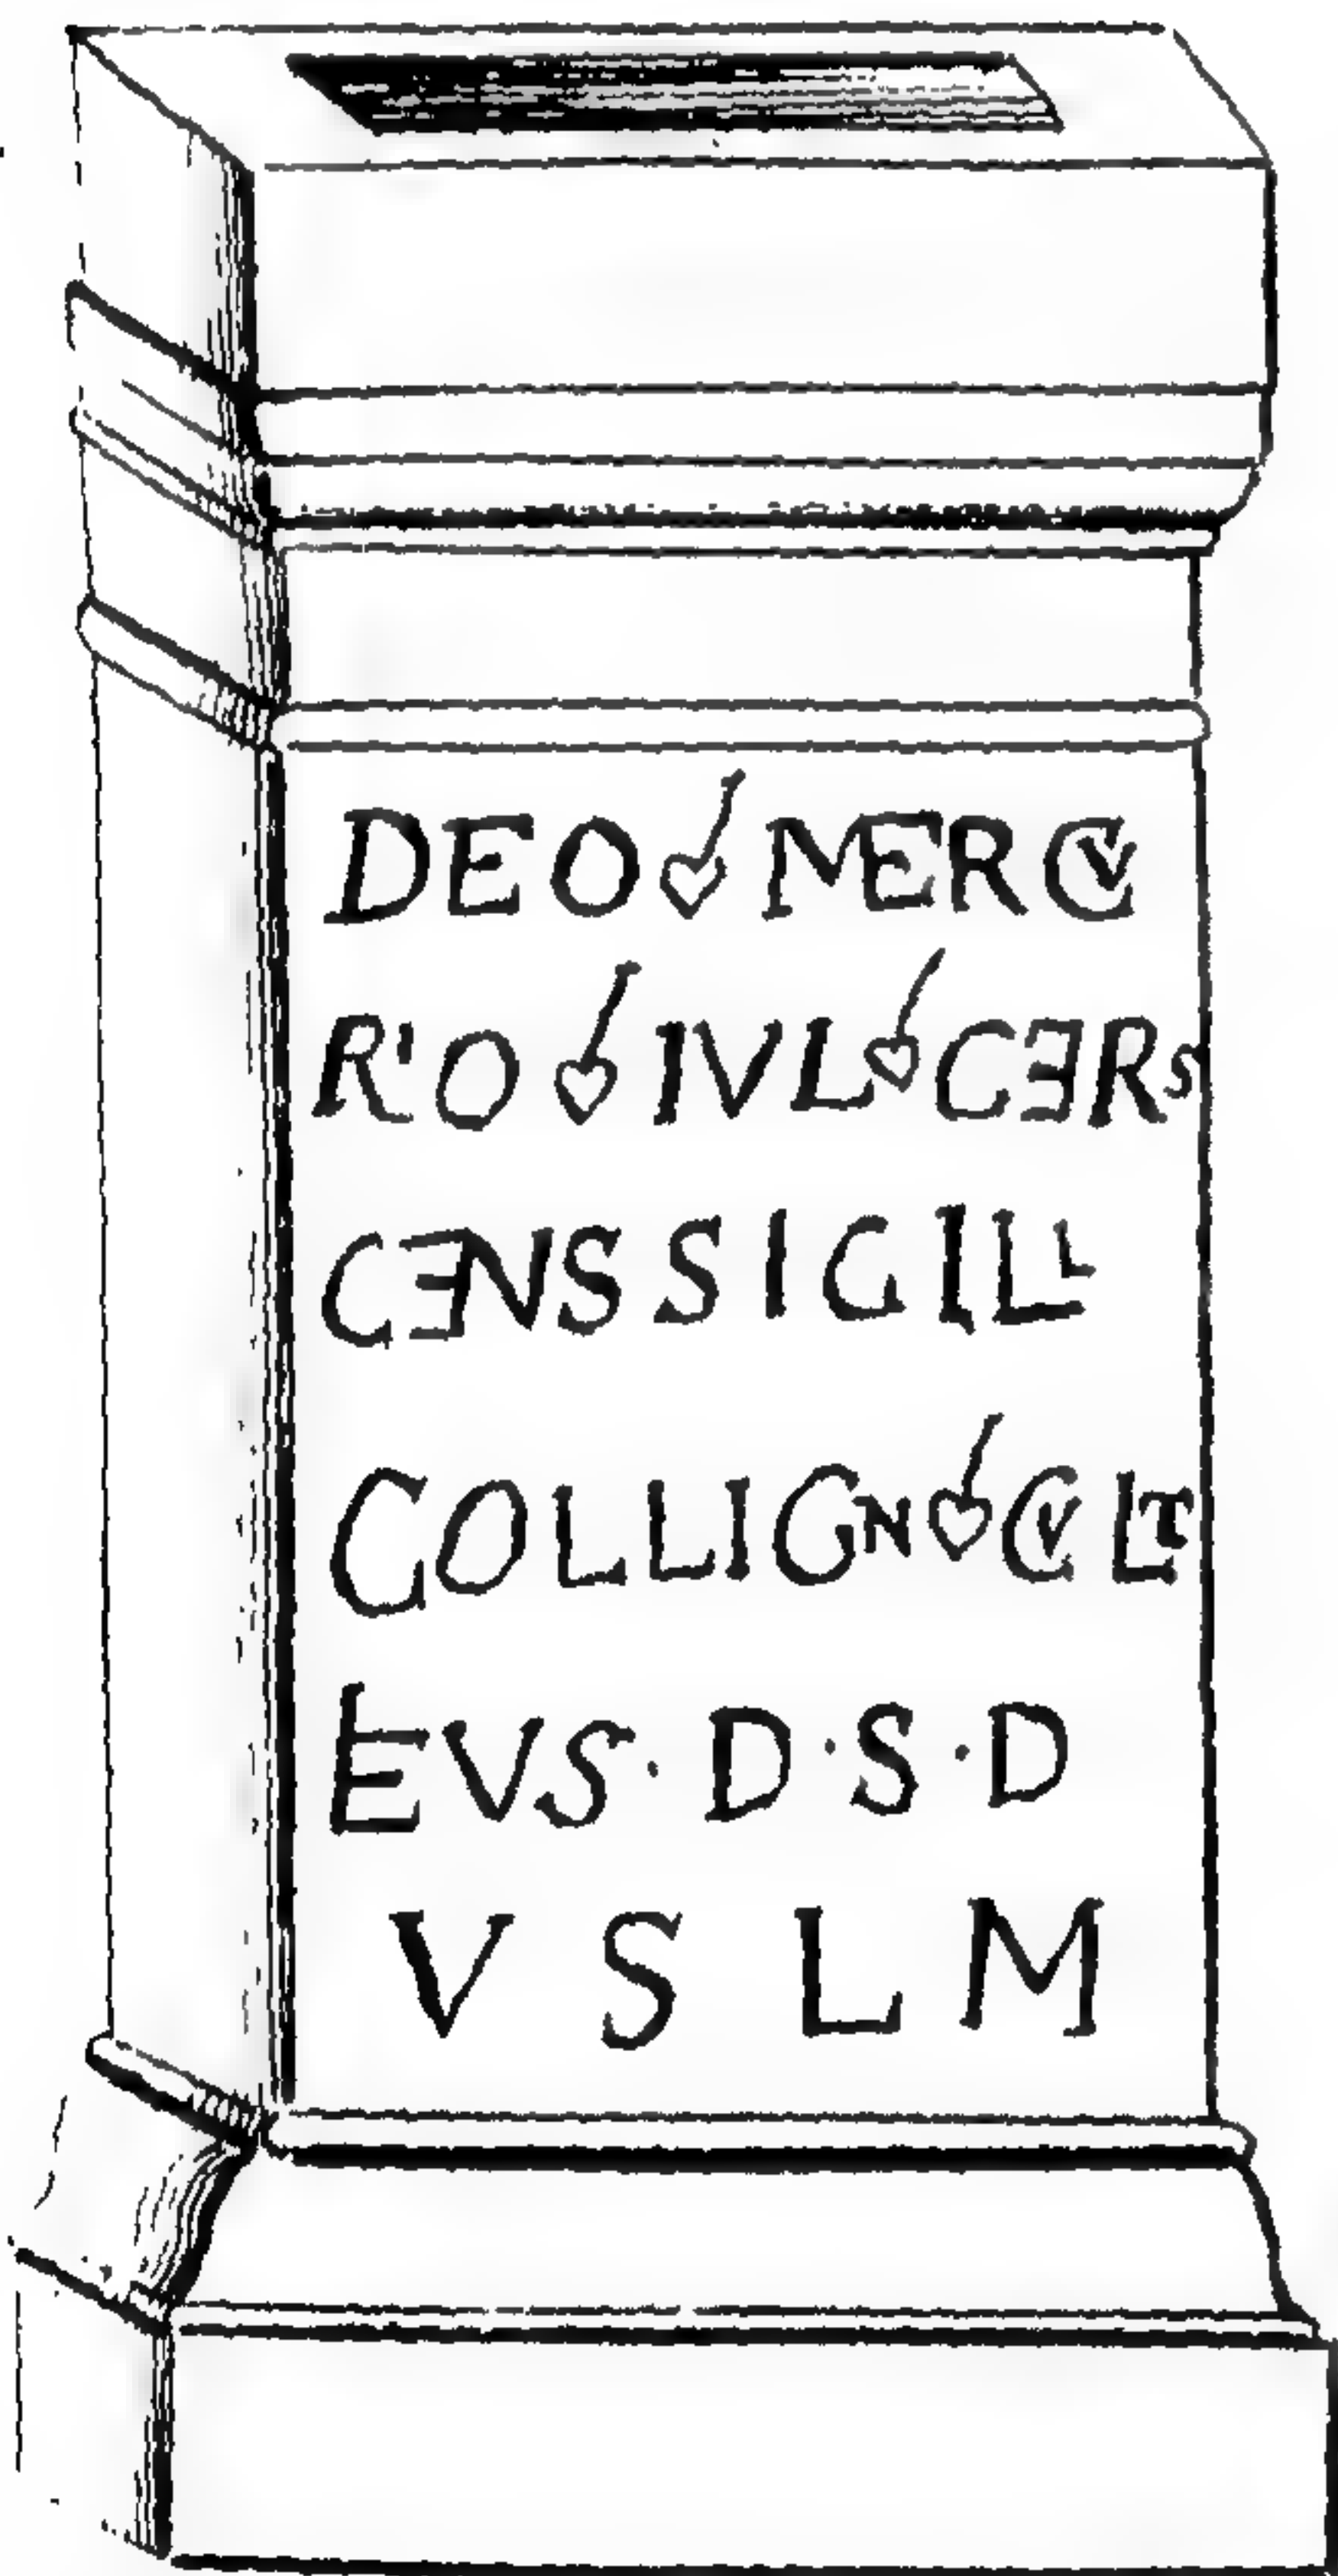 DEO ❦ MERCV
RIO ❦ IVL ❦ CERS
CENS SIGILL
COLLIGN ❦ CVLT
EVS · D · S · D
V S L M